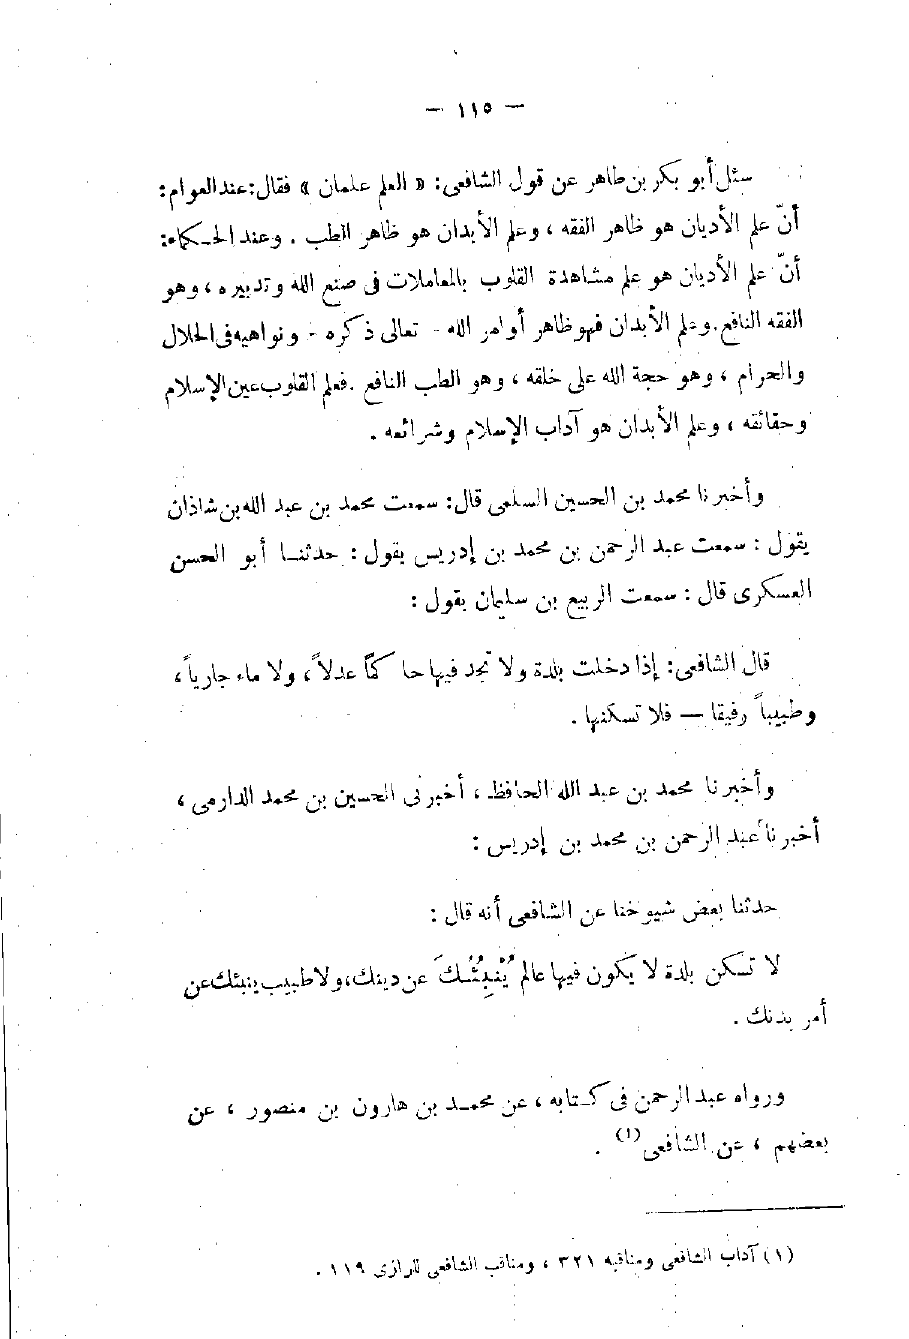 — ١١٥ —
سئل أبو بكر بن طاهر عن قول الشافعى: « العلم علمان » فقال: عند العوام:
أنّ علم الأديان هو ظاهر الفقه ، وعلم الأبدان هو ظاهر الطب . وعند الحكماء:
أنّ علم الأديان هو علم مشاهدة القلوب بالمعاملات فى صنع الله وتدبيره ، وهو
الفقه النافع. وعلم الأبدان فهو ظاهر أوامر الله - تعالى ذكره - ونواهيه فى الحلال
والحرام ، وهو حجة الله على خلقه ، وهو الطب النافع . فعلم القلوب عين الإسلام
وحقائقه ، وعلم الأبدان هو آداب الإسلام وشرائعه .
وأخبرنا محمد بن الحسين السلمى قال: سمعت محمد بن عبد الله بن شاذان
يقول : سمعت عبد الرحمن بن محمد بن إدريس يقول : حدثنا أبو الحسن
العسكرى قال : سمعت الربيع بن سليمان يقول :
قال الشافعى: إذا دخلت بلدة ولا تجد فيها حاكمًا عدلاً ، ولا ماء جارياً ،
وطبيباً رفيقا — فلا تسكنها .
وأخبرنا محمد بن عبد الله الحافظ ، أخبرنى الحسين بن محمد الدارمى ،
أخبرنا عبد الرحمن بن محمد بن إدريس :
حدثنا بعض شيوخنا عن الشافعى أنه قال :
لا تسكن بلدة لا يكون فيها عالم يُنْبِئُكَ عن دينك، ولا طبيب ينبئك عن
أمر بدنك .
ورواه عبد الرحمن فى كتابه ، عن محمد بن هارون بن منصور ، عن
بعضهم ، عن الشافعى (١) .
(١) آداب الشافعى ومناقبه ٣٢١ ، ومناقب الشافعى للرازى ١١٩ .